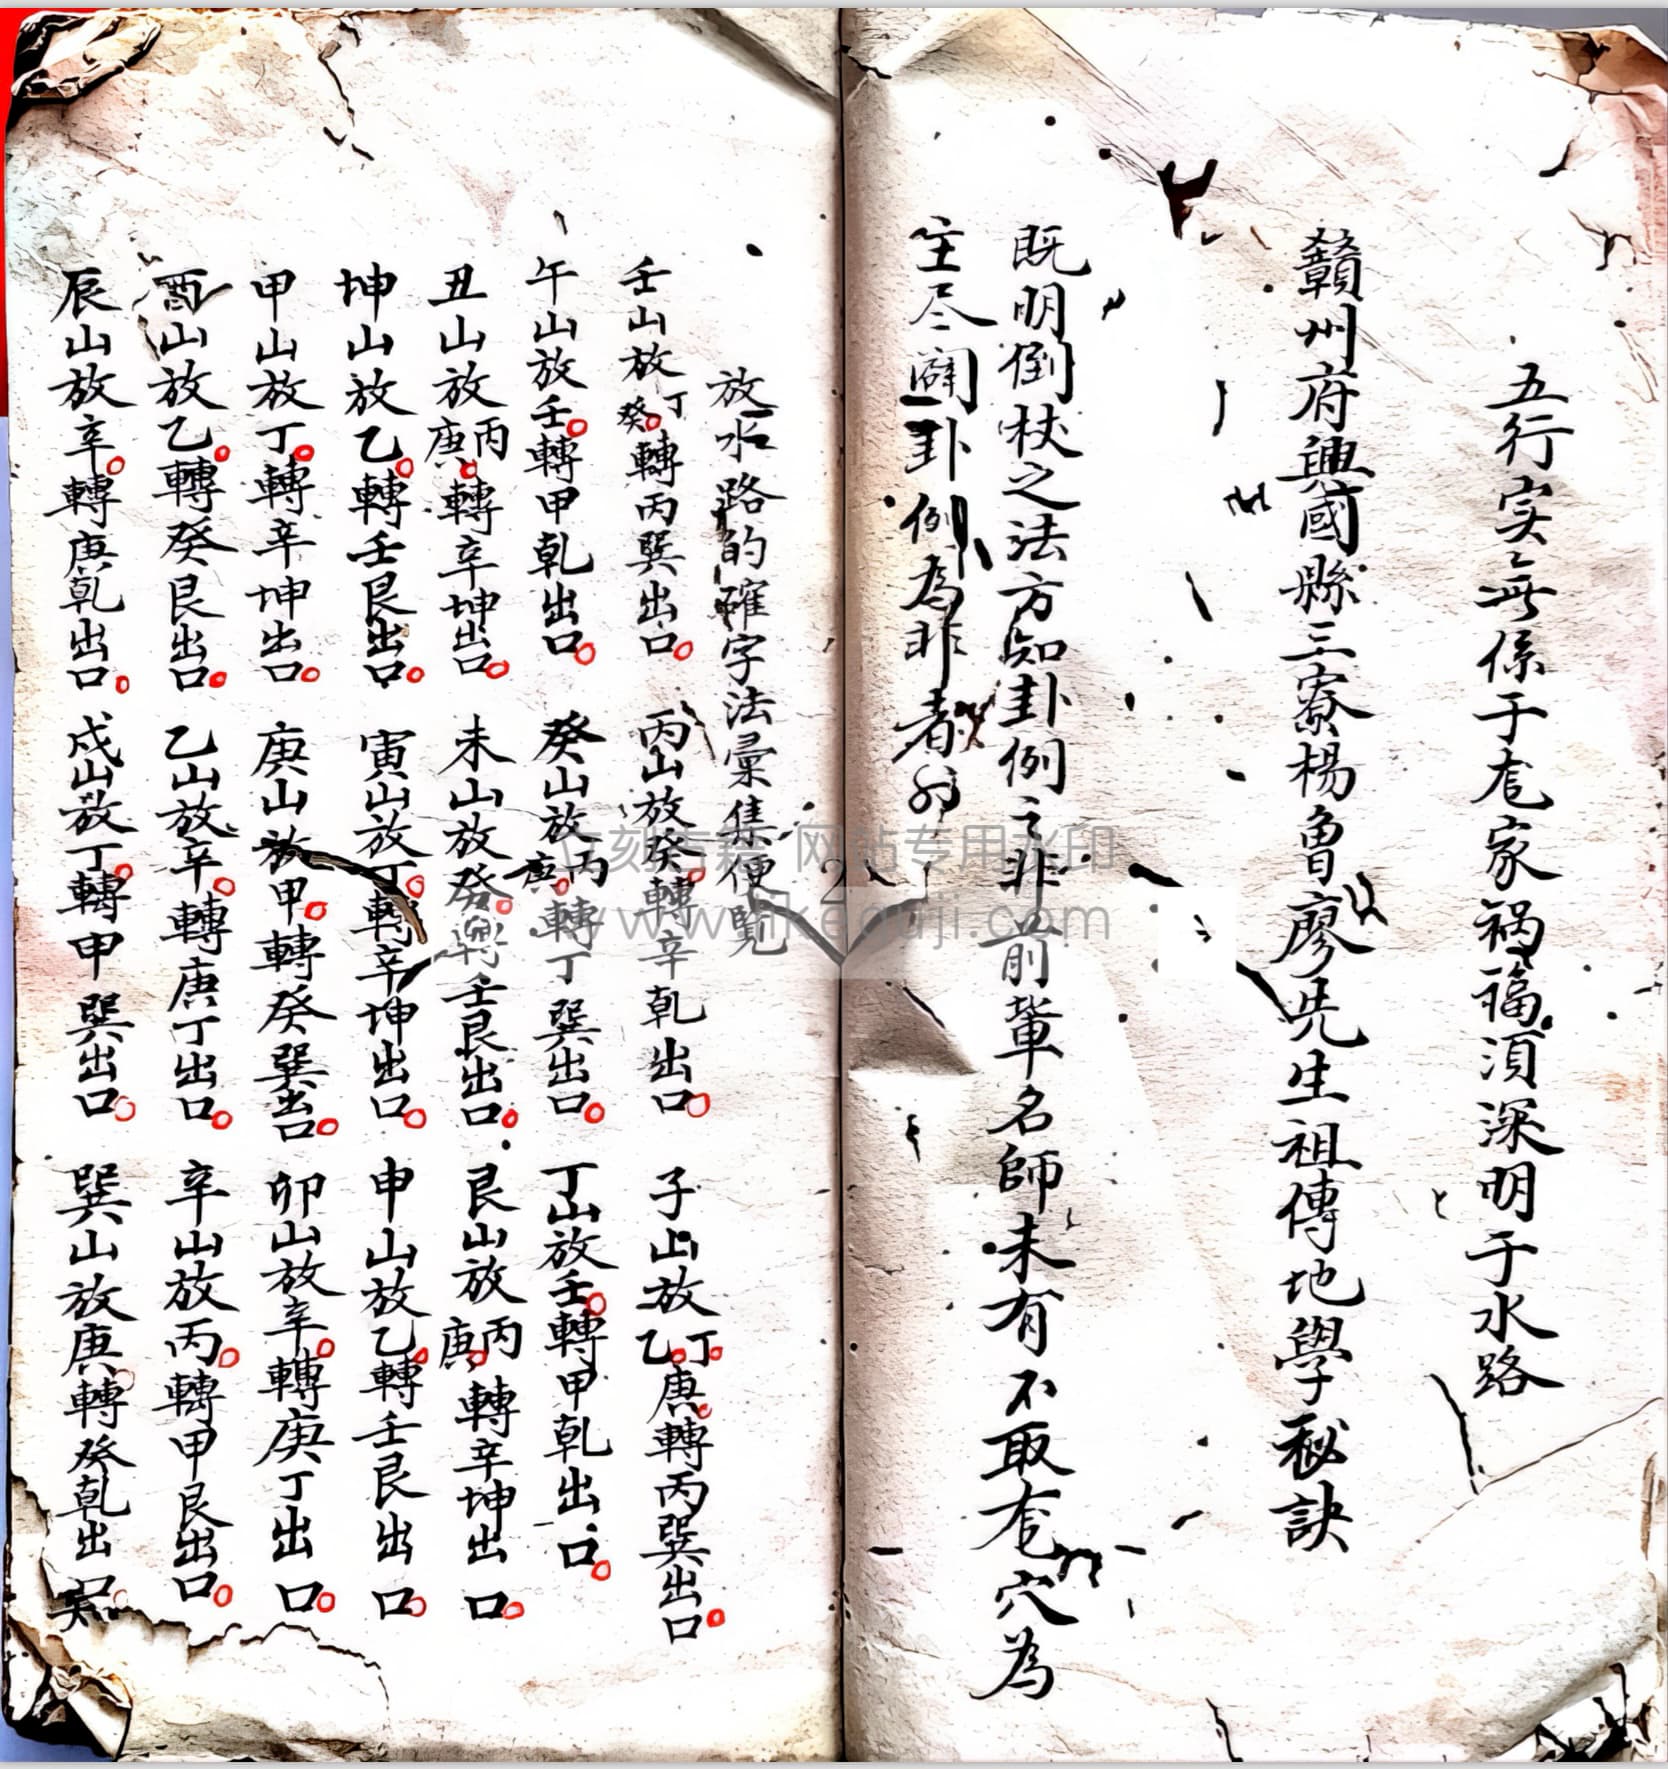 五行实無係于宅家禍福須深明于水路
贛州府興國縣三寮楊曾廖先生祖傳地學秘訣
既明倒杖之法方知卦例之非前輩名師未有不取宅穴為
主尽闢卦例為非者
放水路的確字法彙集便覽
壬山放丁癸轉丙巽出口 丙山放癸轉辛乾出口 子山放丁乙庚轉丙巽出口
午山放壬轉甲乾出口 癸山放丙庚轉丁巽出口 丁山放壬轉甲乾出口
丑山放丙庚轉辛坤出口 未山放癸轉壬艮出口 艮山放丙庚轉辛坤出口
坤山放乙轉壬艮出口 寅山放丁轉辛坤出口 申山放乙轉壬艮出口
甲山放丁轉辛坤出口 庚山放甲轉癸巽出口 卯山放辛轉庚丁出口
酉山放乙轉癸艮出口 乙山放辛轉庚丁出口 辛山放丙轉甲艮出口
辰山放辛轉庚乾出口 戌山放丁轉甲巽出口 巽山放庚轉癸乾出口
立刻古籍 网站专用水印
www.likeguji.com
2